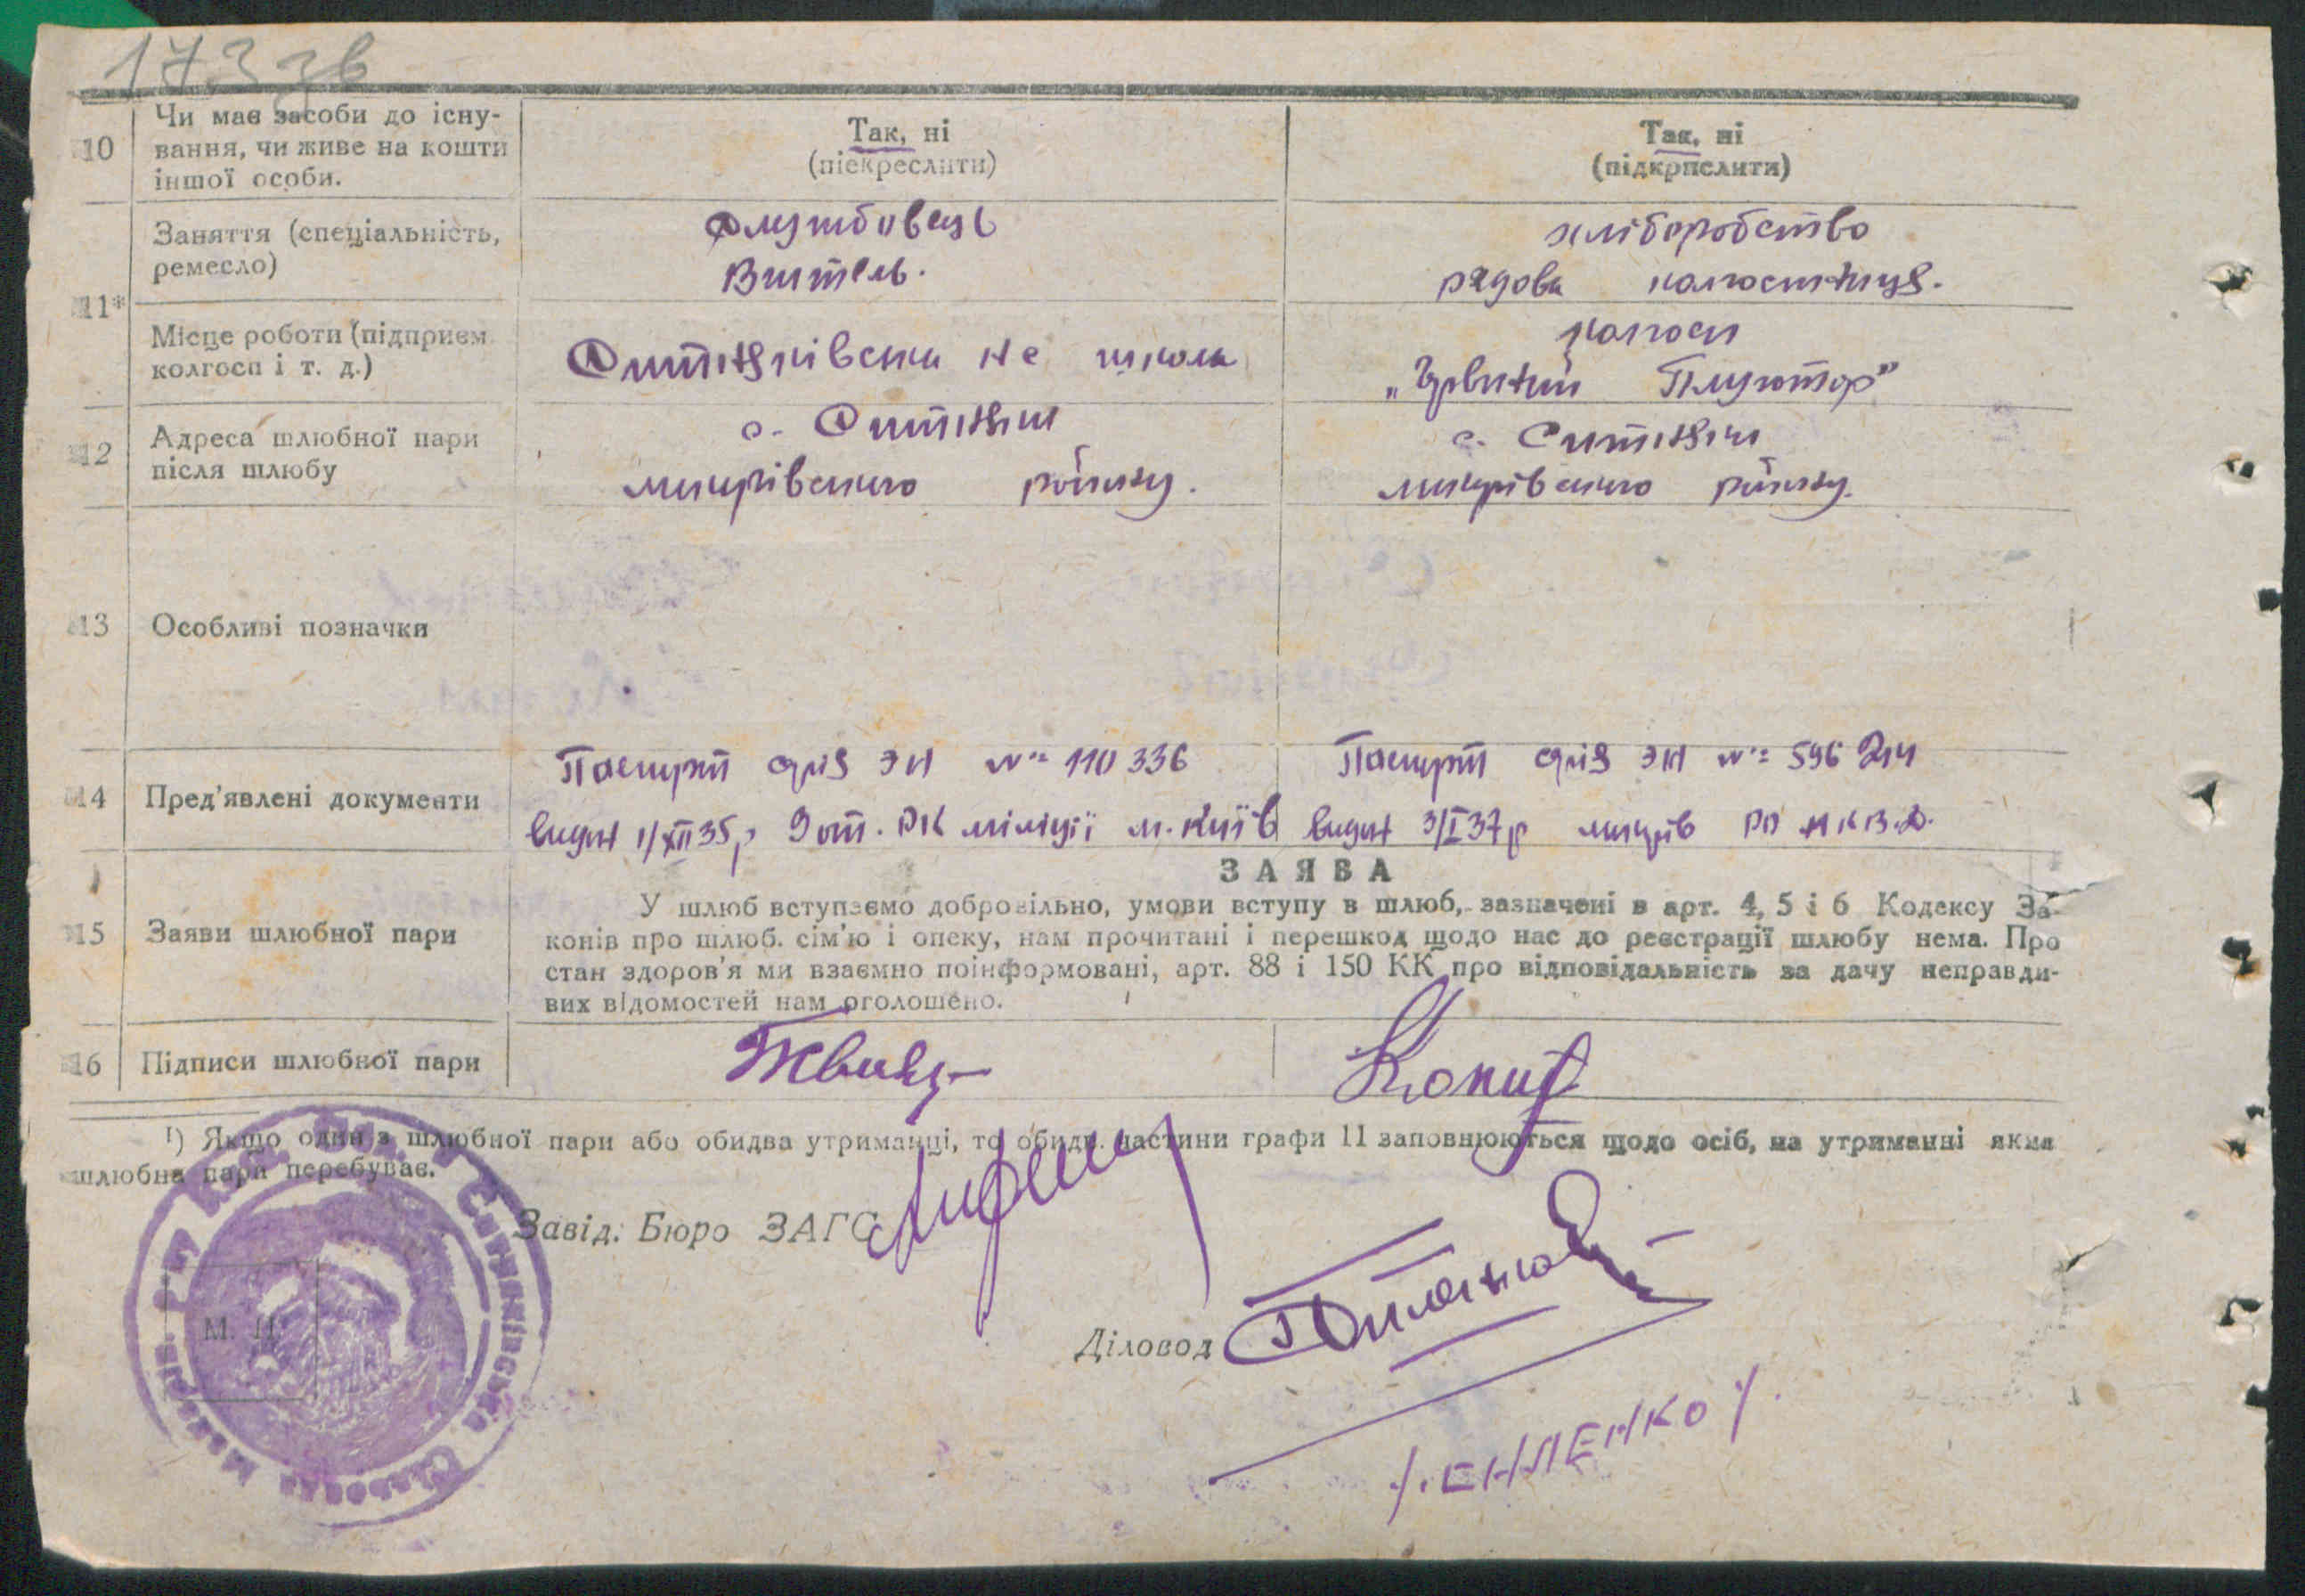 173 зв
10 Чи має засоби до існу-
вання, чи живе на кошти
іншої особи.
Так, ні
(піекреслити)
Так, ні
(підкрпслити)
11*
Заняття (спеціальність,
ремесло)
Службовець
Вчитель.
хліборобство
рядова колгоспниця.
Місце роботи (підприєм.
колгосп і т. д.)
Ситняківська НС школа
колгосп
„Червоний Плугатор"
12 Адреса шлюбної пари
після шлюбу
с. Ситняки
макарівського району.
с. Ситняки
макарівського району.
13 Особливі позначки
14 Пред'явлені документи
Паспорт серія ЭН № 110336
видан 1/XII 35 р 9 от. РК міліції м. Київ
Паспорт серія ЭН № 596214
видан 3/I 37 р макарів РО НКВД.
15 Заяви шлюбної пари
ЗАЯВА
У шлюб вступаємо добровільно, умови вступу в шлюб, зазначені в арт. 4, 5 і 6 Кодексу За-
конів про шлюб. сім'ю і опеку, нам прочитані і перешкод щодо нас до реєстрації шлюбу нема. Про
стан здоров'я ми взаємно поінформовані, арт. 88 і 150 КК про відповідальність за дачу неправди-
вих відомостей нам оголошено.
16 Підписи шлюбної пари
¹) Якщо один з шлюбної пари або обидва утриманці, то обидв. частини графи 11 заповнюються щодо осіб, на утриманні яких
шлюбна пара перебуває.
Завід. Бюро ЗАГС
М. П.
Діловод